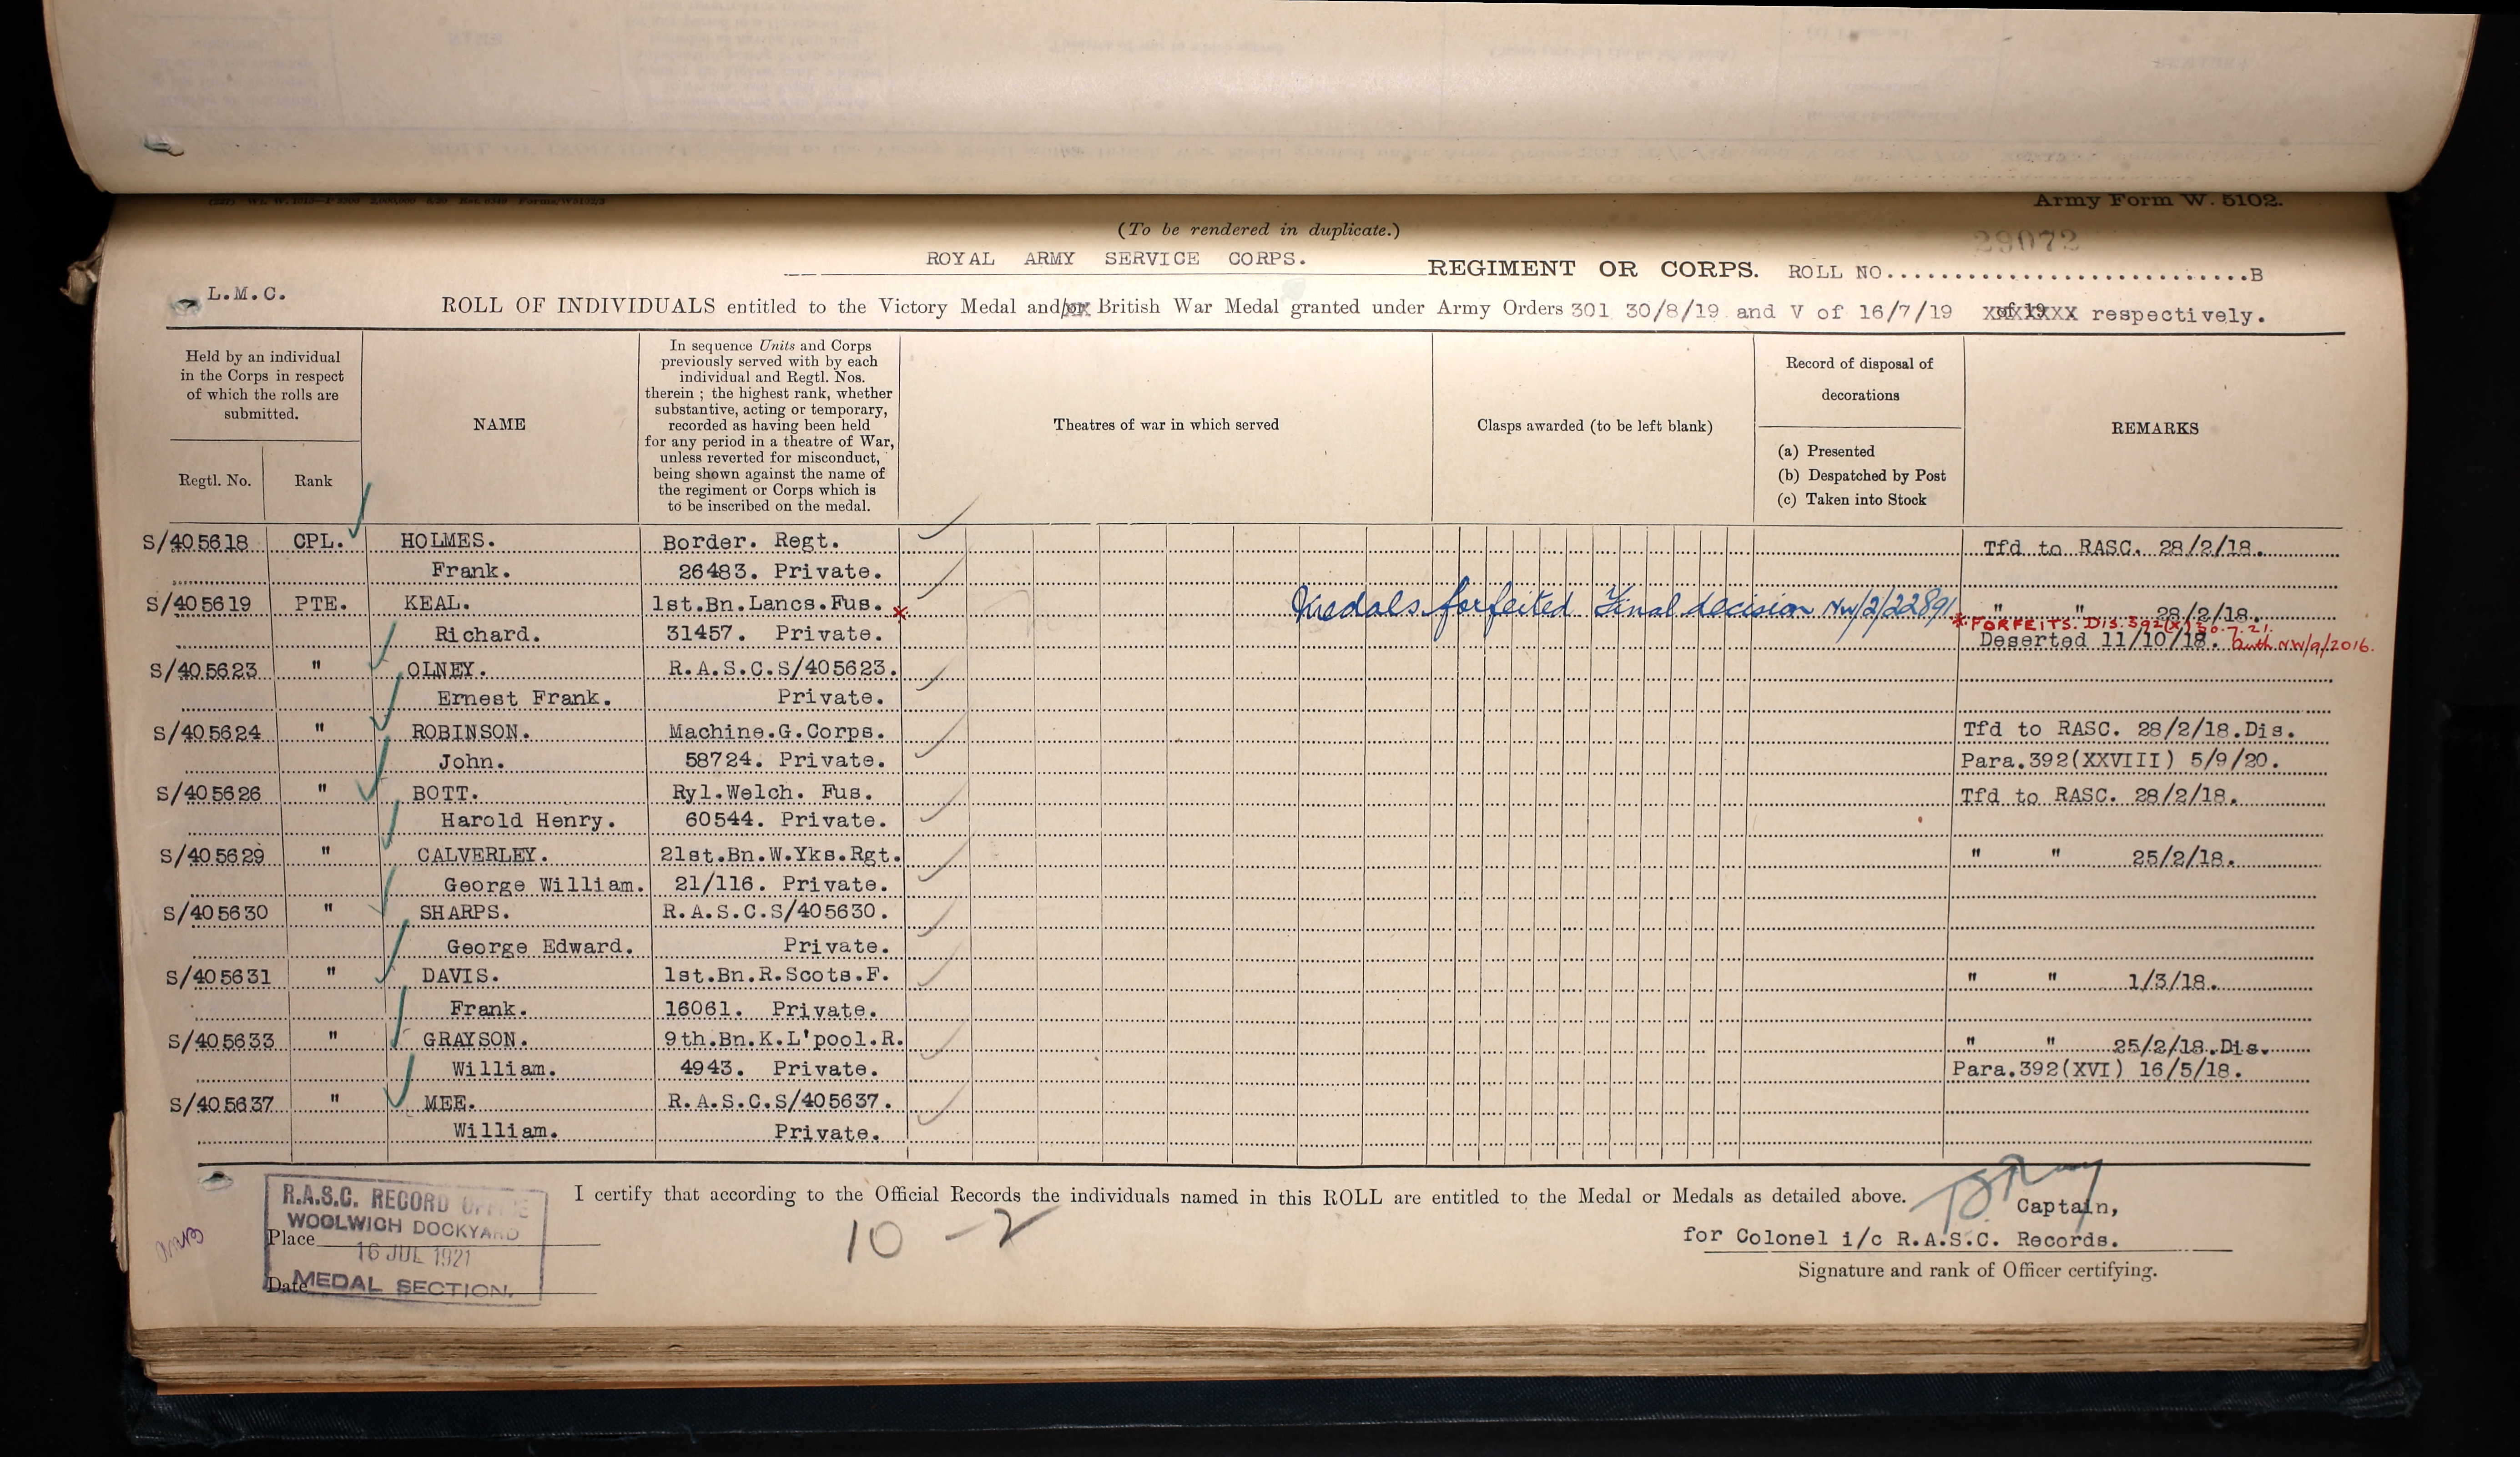 Army Form W. 5102.
(To be rendered in duplicate.)
29072
ROYAL ARMY SERVICE CORPS. REGIMENT OR CORPS. ROLL NO...........................B
L.M.C.
ROLL OF INDIVIDUALS entitled to the Victory Medal and/or British War Medal granted under Army Orders 301 30/8/19 and V of 16/7/19 respectively.
Held by an individual in the Corps in respect of which the rolls are submitted.
Regtl. No.
Rank
NAME
In sequence Units and Corps
previously served with by each
individual and Regtl. Nos.
therein ; the highest rank, whether
substantive, acting or temporary,
recorded as having been held
for any period in a theatre of War,
unless reverted for misconduct,
being shown against the name of
the regiment or Corps which is
to be inscribed on the medal.
Theatres of war in which served
Clasps awarded (to be left blank)
Record of disposal of
decorations
(a) Presented
(b) Despatched by Post
(c) Taken into Stock
REMARKS
S/405618 CPL. HOLMES. Border. Regt. Tfd to RASC. 28/2/18.
Frank. 26483. Private.
S/405619 PTE. KEAL. 1st.Bn.Lancs.Fus. x Medals forfeited Final decision NW/2/22891 " " 28/2/18.
* FORFEITS. Dis 392(X) 30.7.21.
Richard. 31457. Private. Deserted 11/10/18. Auth NW/9/2016.
S/405623 " OLNEY. R.A.S.C.S/405623.
Ernest Frank. Private.
S/405624 " ROBINSON. Machine.G.Corps. Tfd to RASC. 28/2/18.Dis.
John. 58724. Private. Para.392(XXVIII) 5/9/20.
S/405626 " BOTT. Ryl.Welch. Fus. Tfd to RASC. 28/2/18.
Harold Henry. 60544. Private.
S/405629 " CALVERLEY. 21st.Bn.W.Yks.Rgt. " " 25/2/18.
George William. 21/116. Private.
S/405630 " SHARPS. R.A.S.C.S/405630.
George Edward. Private.
S/405631 " DAVIS. 1st.Bn.R.Scots.F. " " 1/3/18.
Frank. 16061. Private.
S/405633 " GRAYSON. 9th.Bn.K.L'pool.R. " " 25/2/18.Dis.
William. 4943. Private. Para.392(XVI) 16/5/18.
S/405637 " MEE. R.A.S.C.S/405637.
William. Private.
R.A.S.C. RECORD OFFICE
WOOLWICH DOCKYARD
Place
16 JUL 1921
Date
MEDAL SECTION.
I certify that according to the Official Records the individuals named in this ROLL are entitled to the Medal or Medals as detailed above.
10 - 2
Captain,
for Colonel i/c R.A.S.C. Records.
Signature and rank of Officer certifying.